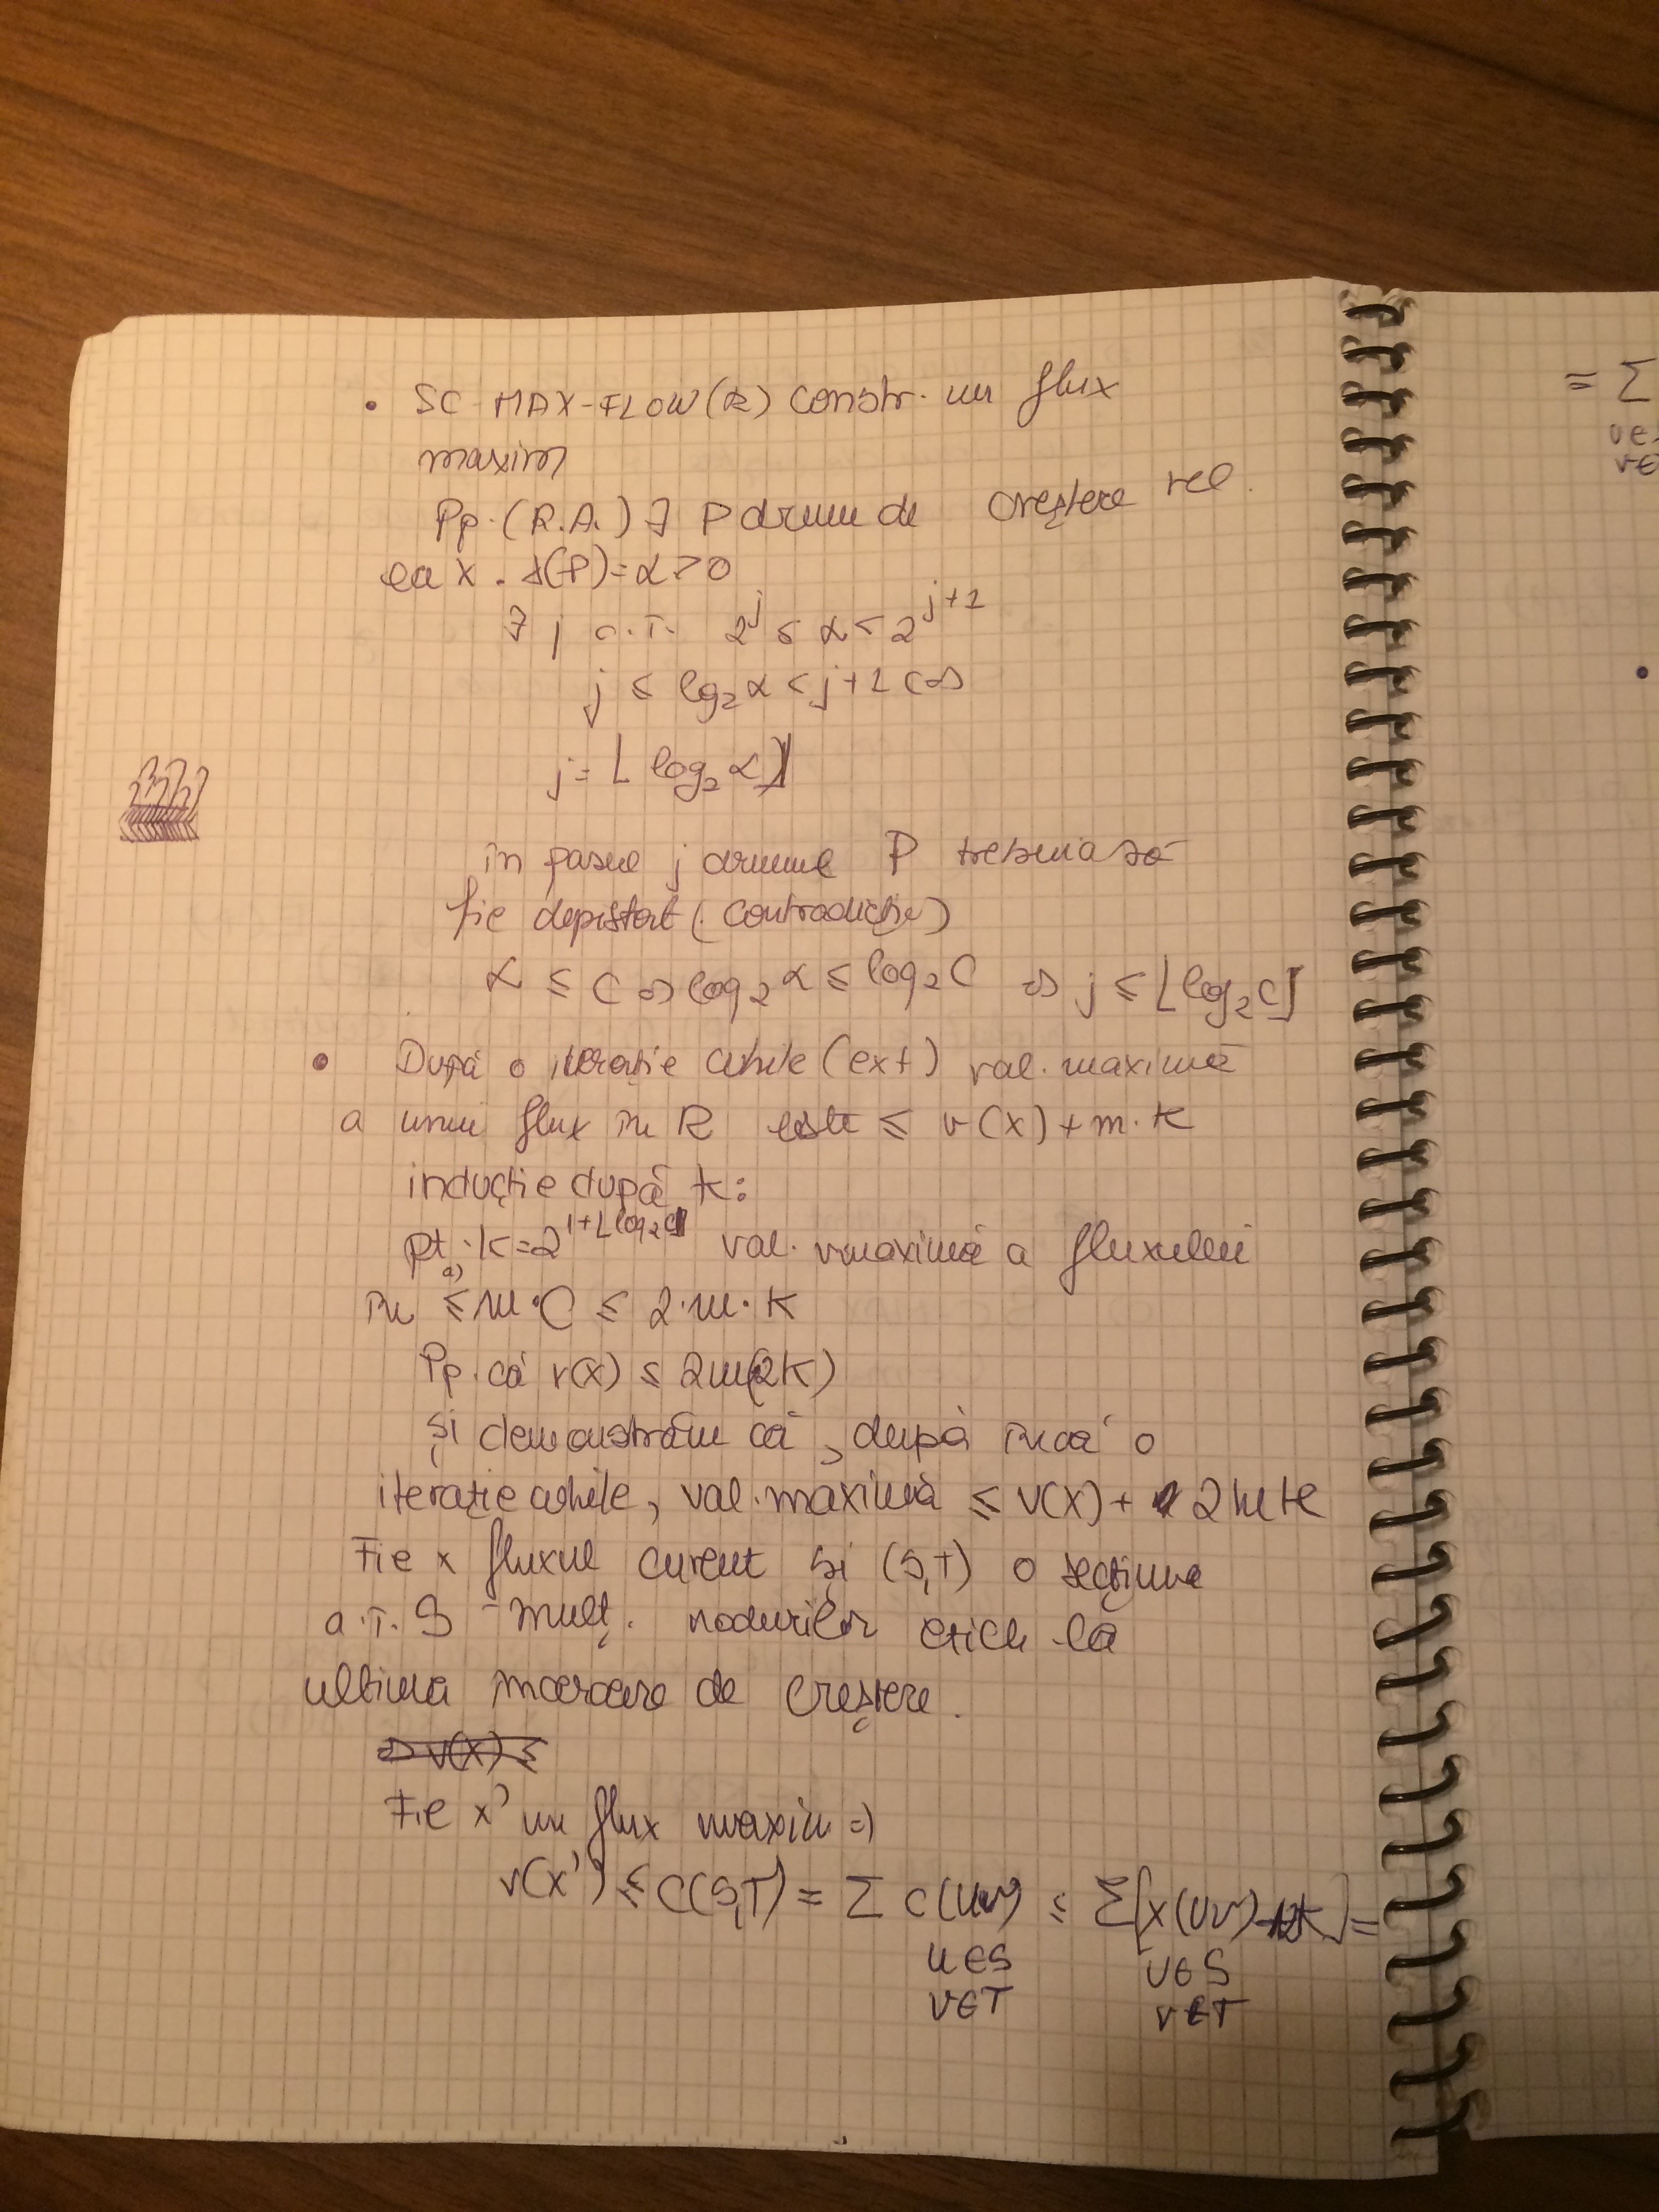 • SC-MAX-FLOW(R) constr. un flux
maxim
Pp. (R.A.) ∃ P drum de creștere rel.
la x. δ(P)=α>0
∃ j a.î. 2^j ≤ α < 2^{j+1}
j ≤ log₂α < j+1 ⇔
j = ⌊log₂ α⌋
în pasul j drumul P trebuia să
fie depistat (contradicție)
α ≤ C ⇔ log₂α ≤ log₂C ⇒ j ≤ ⌊log₂C⌋
• După o iterație while (ext) val. maximă
a unui flux în R este ≤ v(x) + m·K
inducție după K:
a) pt. K=2^{1+⌊log₂C⌋} val. maximă a fluxului
în ≤ m·C ≤ 2·m·K
Pp. că v(x) ≤ 2m(2K)
și demonstrăm că, după încă o
iterație while, val. maximă ≤ v(x) + 2mK
Fie x fluxul curent și (S,T) o secțiune
a.î. S - mulț. nodurilor etich la
ultima încercare de creștere.
⇒ v(x) ≤
Fie x' un flux maxim ⇒
v(x') ≤ C(S,T) = Σ c(uv) ≤ Σ[x(uv)+K] =
u∈S u∈S
v∈T v∈T
= Σ
•